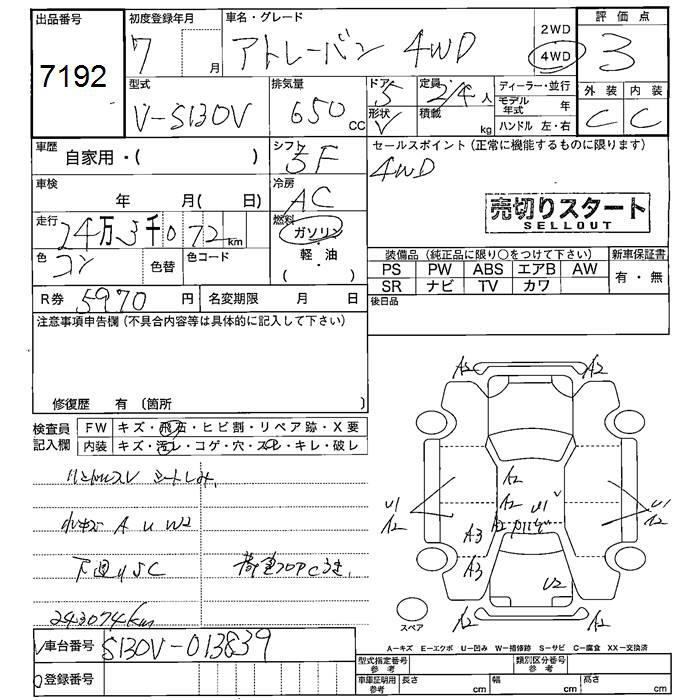 出品番号
7192
初度登録年月
7 月
車名・グレード
アトレーバン 4WD
2WD
4WD
評価点
3
型式
V-S130V
排気量
650 CC
ドア 5
形状 V
定員 2/4 人
積載 kg
ディーラー・並行
モデル年式 年
ハンドル 左・右
外装 内装
C C
車歴
自家用・( )
シフト
5F
セールスポイント（正常に機能するものに限ります）
4WD
売切りスタート
SELLOUT
車検
年 月( 日)
冷房
AC
走行
24万3千072km
燃料
ガソリン
軽・油
( )
色
コン
色替
色コード
装備品（純正品に限り○をつけて下さい）
新車保証書
PS PW ABS エアB AW
有・無
SR ナビ TV カワ
R券 5970 円
名変期限 月 日
後日品
注意事項申告欄（不具合内容等は具体的に記入して下さい）
修復歴 有（箇所 ）
検査員記入欄
FW キズ・飛石・ヒビ割・リペア跡・X要
内装 キズ・汚レ・コゲ・穴・スレ・キレ・破レ
シートしみ,
小キズ A U W2
下廻りSC
荷室フロアCうき,
243074km
A2 A2
A2
A2 U1
A2
A3
A3
U1
A2
U1
A2
U2
A2 A2
スペア
A−キズ E−エクボ U−凹み W−補修跡 S−サビ C−腐食 XX−交換済
車台番号 S130V-013839
登録番号
型式指定番号 参考
類別区分番号 参考
車庫証明用 参考
長さ cm
幅 cm
高さ cm